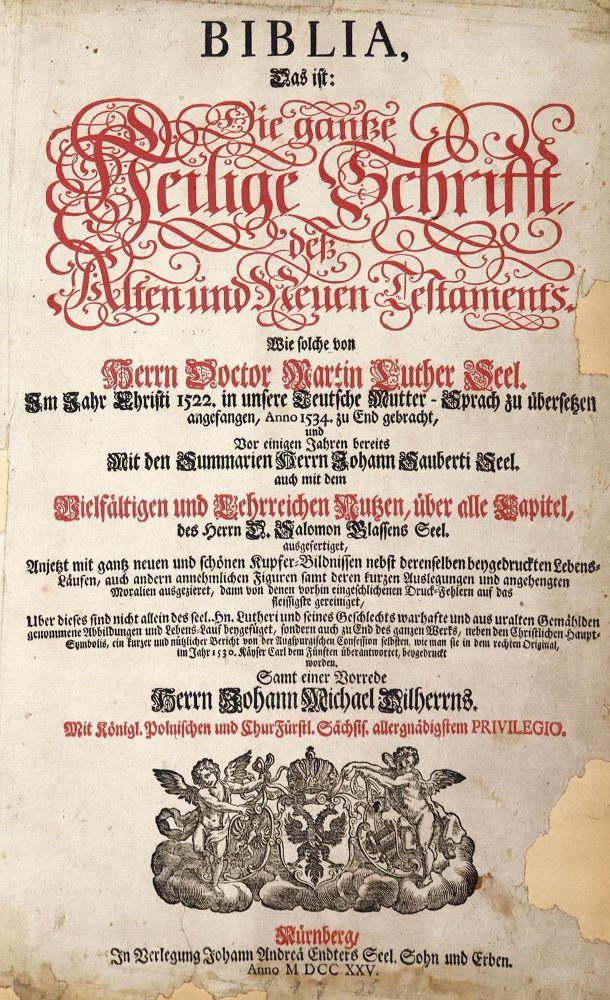 BIBLIA,
Das ist:
Die gantze
Heilige Schrifft,
deß
Alten und Neuen Testaments.
Wie solche von
Herrn Doctor Martin Luther Seel.
Im Jahr Christi 1522. in unsere Teutsche Mutter-Sprach zu übersetzen
angefangen, Anno 1534. zu End gebracht,
und
Vor einigen Jahren bereits
Mit den Summarien Herrn Johann Sauberti Seel.
auch mit dem
Vielfältigen und Lehrreichen Nutzen, über alle Capitel,
des Herrn D. Salomon Glassens Seel.
ausgefertiget,
Anjetzt mit gantz neuen und schönen Kupfer-Bildnissen nebst derenselben beygedruckten Lebens-
Läufen, auch andern annehmlichen Figuren samt deren kurzen Auslegungen und angehengten
Moralien ausgezieret, dann von denen vorhin eingeschlichenen Druck-Fehlern auf das
fleissigste gereiniget,
Uber dieses sind nicht allein des seel. Hn. Lutheri und seines Geschlechts warhafte und aus uralten Gemählden
genommene Abbildungen und Lebens-Lauf beygefüget, sondern auch zu End des ganzen Werks, neben den Christlichen Haupt-
Symbolis, ein kurzer und nützlicher Bericht von der Augspurgischen Confession selbsten, wie man sie in dem rechten Original,
im Jahr 1530. Käyser Carl dem Fünften überantwortet, beygedruckt
worden.
Samt einer Vorrede
Herrn Johann Michael Dilherrns.
Mit Königl. Polnischen und ChurFürstl. Sächsis. allergnädigstem PRIVILEGIO.
Nürnberg/
In Verlegung Johann Andreä Endters Seel. Sohn und Erben.
Anno M DCC XXV.
1725